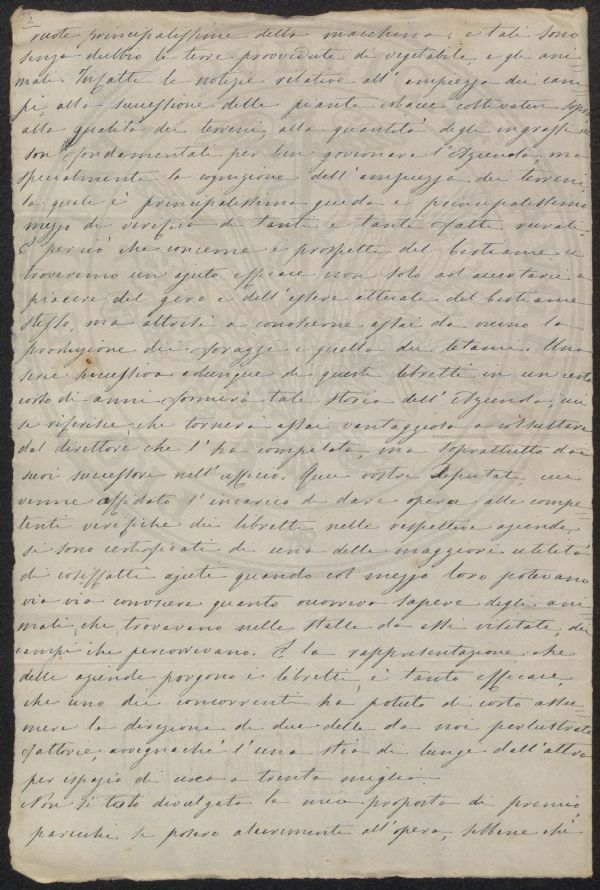 2
ruote principalissime della macchina; e tali sono
senza dubbio le terre provvedute di vegetabili, e gli ani
mali. Infatti le notizie relative all'ampiezza dei cam
pi, alla successione delle piante erbacee coltivatevi sopra
alla qualità dei terreni, alla quantità degli ingrassi
son fondamentali per ben governare l'Azienda, ma
specialmente la cognizione dell'ampiezza dei terreni,
la quale è principalissima guida e principalissimo
mezzo di verifica di tanti e tanti fatti rurali.
E perciò che concerne i prospetti del bestiame ci
troveremo un ajuto efficace non solo ad accertarci a
piacere del giro e dell'essere attuale del bestiame
stesso, ma altresì a conoscerne assai da vicino la
produzione dei foraggi e quella dei letami. Una
serie successiva adunque di questi libretti in un certo
corso di anni formerà tale storia dell'Azienda, cui
si riferisce che tornerà assai vantaggiosa a consultare
dal direttore che l'ha compilata, ma soprattutto dai
suoi successori nell'ufficio. Que' vostri deputati, cui
venne affidato l'incarico di dare opera alle compe
tenti verifiche dei libretti nelle rispettive aziende,
si sono certificati di una della maggiore utilità
di cosiffatti ajuti quando col mezzo loro potevano
via via conoscere quanto occorreva sapere degli ani
mali, che trovavano nelle stalle da essi visitate, dei
campi che percorrevano. E la rappresentazione che
delle aziende porgono i libretti, è tanto efficace,
che uno dei concorrenti ha potuto di certo assu
mere la direzione di due delle da noi perlustrate
fattorie, avvegnachè l'una stia di lunge dall'altra
per ispazio di circa a trenta miglia.
Non sì tosto divulgata la mia proposta di premio,
parecchi si posero alacremente all'opera, sebbene chè